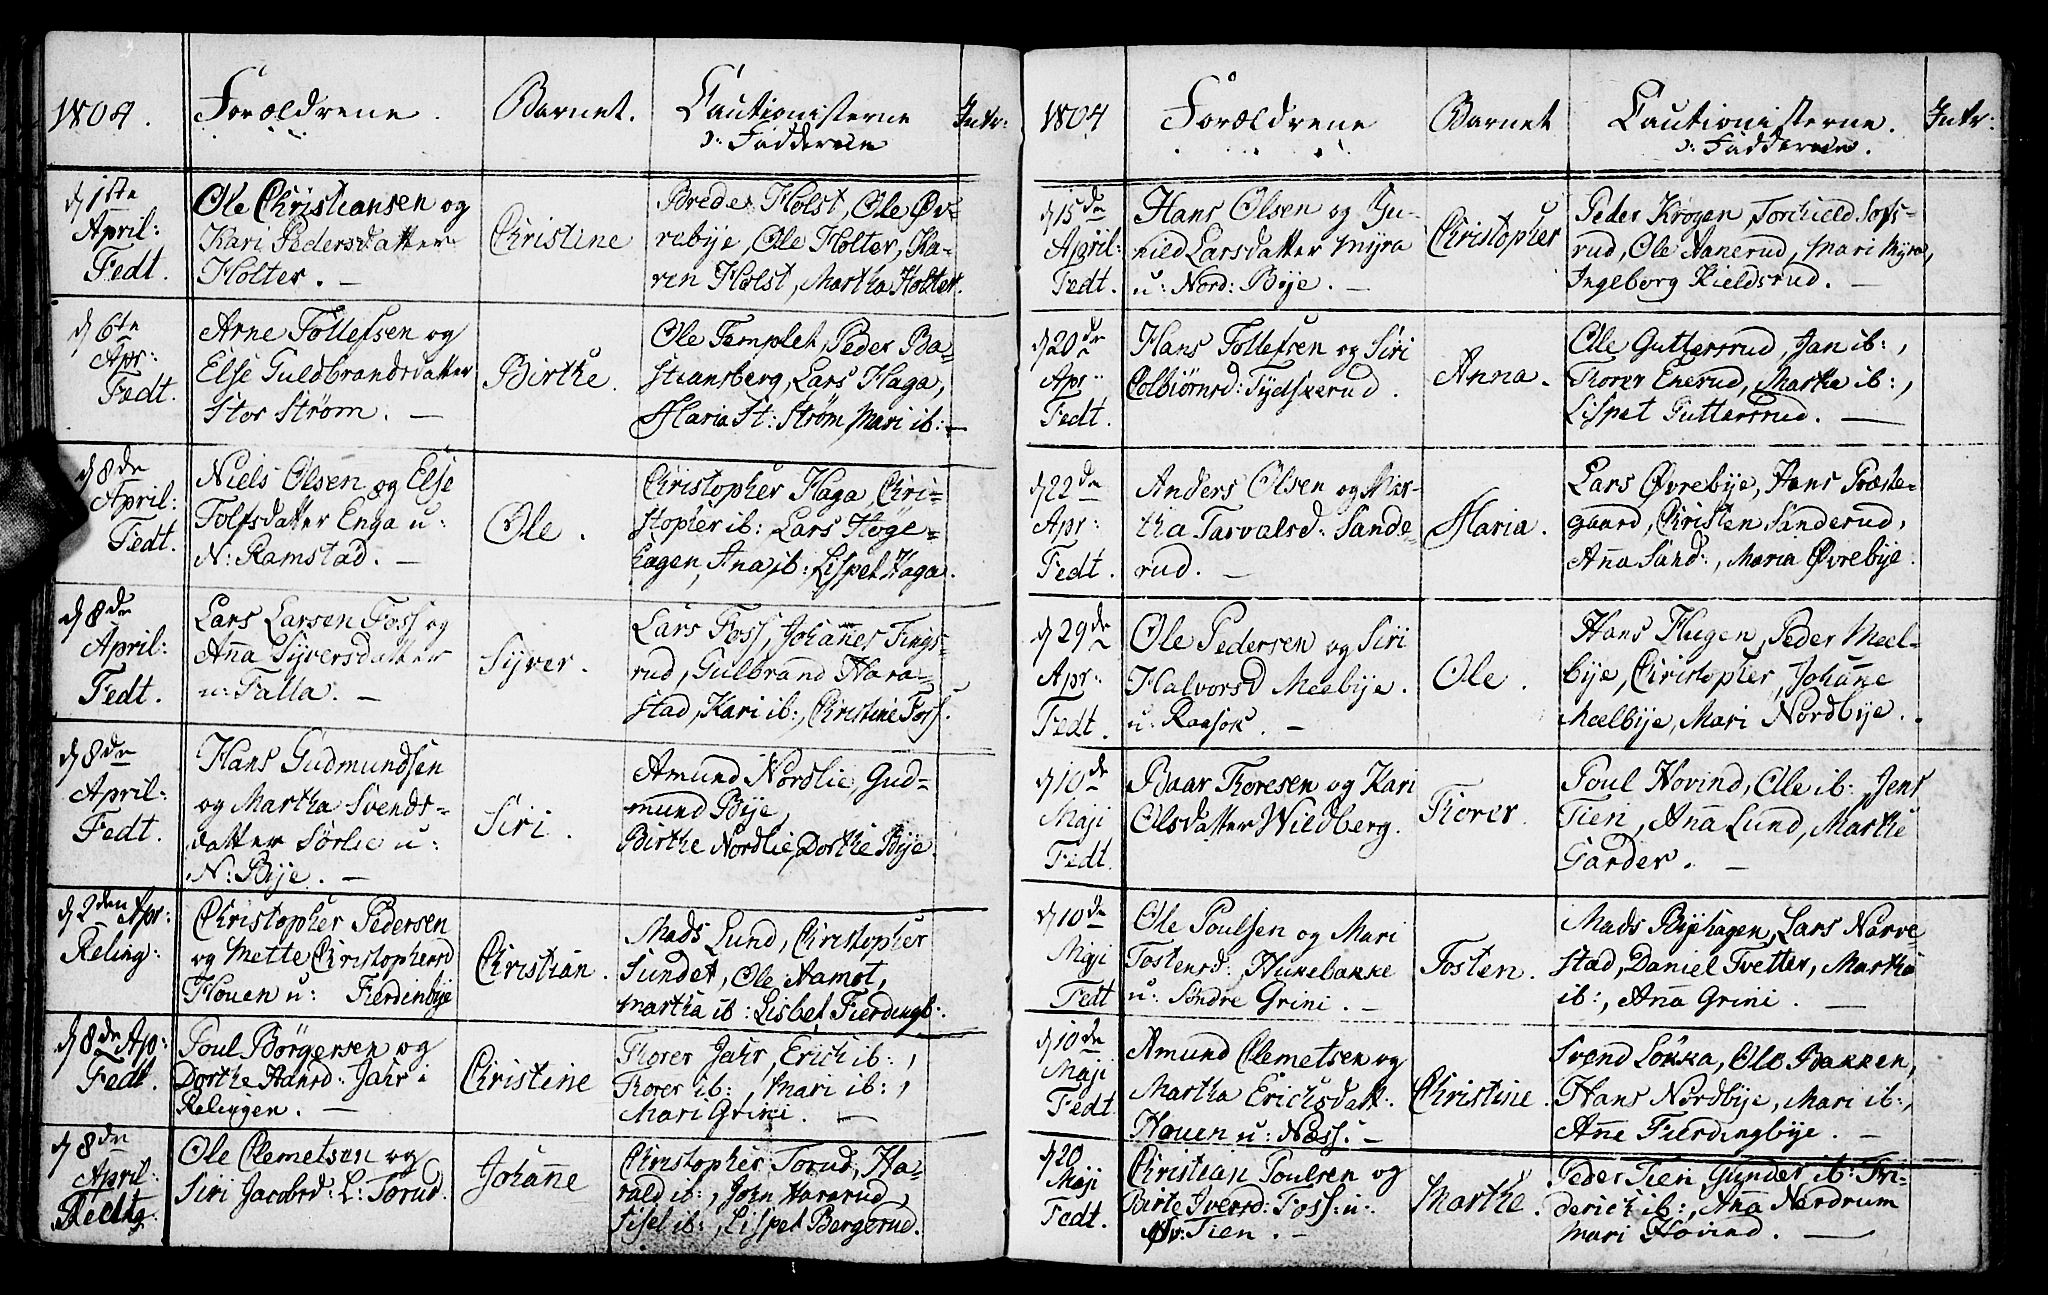 1804.
Forældrene.
Barnet.
Cautionisterne
ɔ: Fadderne
Intr:
d 1ste
April:
Fedt.
Ole Christiansen og
Kari Pedersdatter
Holter. —
Christine
Brede Holst, Ole Øv-
rebye, Ole Holter, Ka-
ren Holst, Martha Holter.
d 6te
Apr:
Fedt.
Arne Tollefsen og
Else Guldbrandsdatter
Stor Strøm. —
Birthe.
Ole Templet, Peder Ba-
stiansberg, Lars Haga,
Maria St: Strøm, Mari ib: —
d 8de
April:
Fedt.
Niels Olsen og Else
Tolfsdatter Enga u:
N: Ramstad. —
Ole.
Christopher Haga, Chri-
stopher ib: Lars Høge-
hagen, Ana ib: Lispet Haga.
d 8de
April:
Fedt.
Lars Larsen Foss og
Aña Syversdatter
u: Falla. —
Syver.
Lars Foss, Johañes Tings-
rud, Gulbrand Hara-
stad, Kari ib:, Christine Foss.
d 8de
April:
Fedt.
Hans Gudmundsen
og Martha Svends-
datter Sørlie u:
N: Bye. —
Siri.
Amund Nordlie, Gud-
mund Bye,
Birthe Nordlie, Dorthe Bye.
d 2den Apr:
Reling:
Christopher Pedersen
og Mette Christophersd
Houen u: Fierdinbye
Christian.
Mads Lund, Christopher
Sundet, Ole Aamot,
Martha ib: Lisbet Fierdingb:
d 8de Ap:
Fedt.
Poul Børgersen og
Dorthe Hansd: Jahr i
Relingen. —
Christine
Thorer Jahr, Erich ib:,
Thorer ib: Mari ib:,
Mari Grini. —
d 8de
April:
Ole Clemetsen og
Siri Jacobsd: L: Torud.
Johañe
Christopher Torud, Ha-
rald ib:, John Hararud,
Sisel ib:, Lispet Bergerud.
1804
Forældrene
Barnet
Cautionisterne.
ɔ: Fadderne.
Intr:
d 15de
April:
Fedt.
Hans Olsen og Gu-
nild Larsdatter Myra
u: Nord: Bye. —
Christopher
Peder Krogen, Torkield Sops-
rud, Ole Aanerud, Mari Myra,
Ingeborg Kieldsrud. —
d 20de
Apr:
Fedt.
Hans Tollefsen og Siri
Colbiørnsd: Tydskerud.
Anna.
Ole Guttersrud, Jan ib:,
Thorer Enerud, Martha ib:,
Lispet Guttersrud. —
d 22de
Apr:
Fedt.
Anders Olsen og Mar-
tha Tarvalsd: Sande-
rud. —
Maria.
Lars Øvrebye, Hans Præste-
gaard, Christen Sanderud,
Aña Sand:, Maria Øvrebye.
d 29de
Apr:
Fedt.
Ole Pedersen og Siri
Halvorsd Meebye.
u: Raasok. —
Ole.
Hans Hugen, Peder Meel-
bye, Christopher, Johañe
Meelbye, Mari Nordbye.
d 10de
Maji
Fedt.
Baar Thoresen og Kari
Olsdatter Wildberg.
Thorer.
Poul Hovind, Ole ib: Jens
Tien, Aña Lund, Marthe
Garder. —
d 10de
Maji
Fedt
Ole Poulsen og Mari
Tostensd: Hukebakke
u: Søndre Grini. —
Tosten.
Mads Byehagen, Lars Narve-
stad, Daniel Tvetter, Martha
ib:, Aña Grini. —
d 10de
Maji
Fedt
Amund Clemetsen og
Martha Erichsdatt:
Houen u: Næss. —
Christine.
Svend Løkka, Ole Bakken,
Hans Nordbye, Mari ib:,
Ane Fierdingbye. —
d 20
Maji
Fedt.
Christian Poulsen og
Birte Iversd: Foss: u:
Øv: Tien. —
Marthe.
Peder Tien Gunder ib: Fri-
derich ib:, Aña Nordrum
Mari Hovind. —